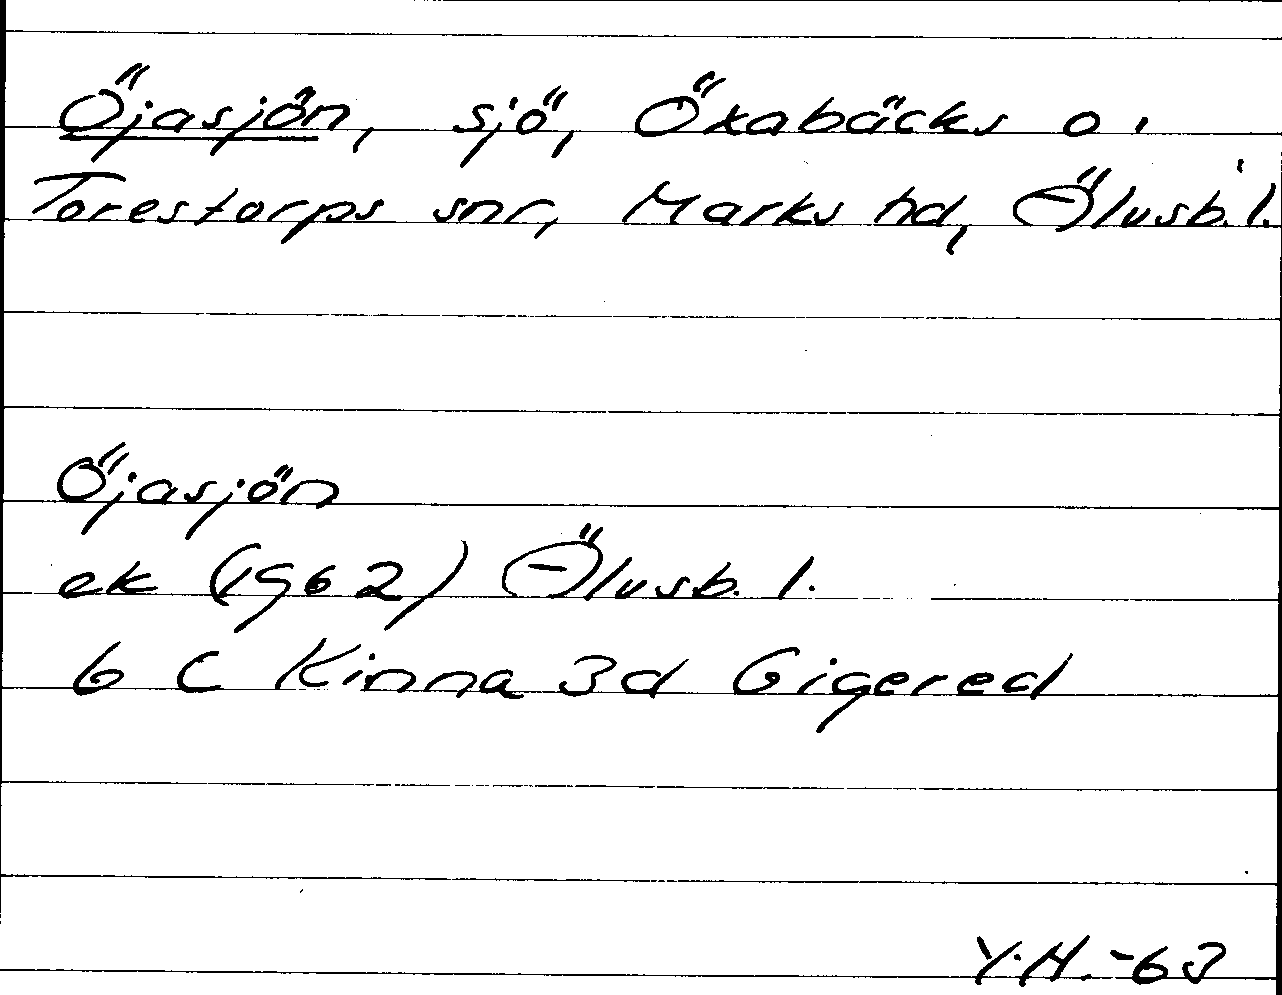 Öjasjön, sjö, Öxabäcks o.
Torestorps snr, Marks hd, Älvsb. l.
Öjasjön
ek (1962) Älvsb. l.
6 C Kinna 3d Gigered
Y.H. -63